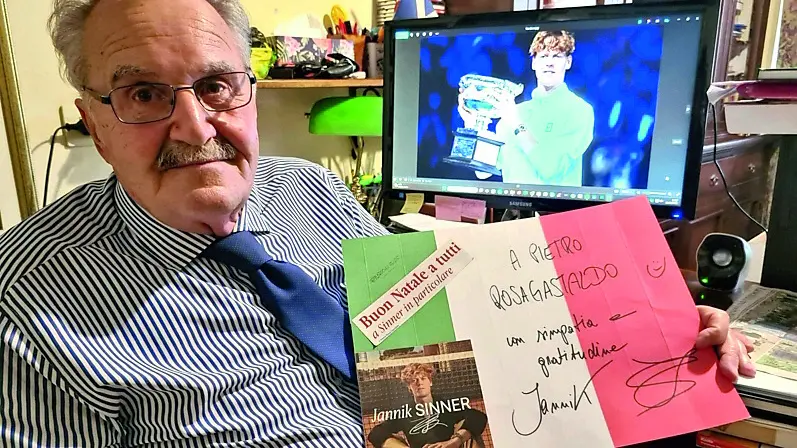 SAMSUNG
Buon Natale a tutti
a Sinner in particolare
A PIETRO
ROSAGASTALDO
un simpatia e
gratitudine
Jannik
Jannik SINNER